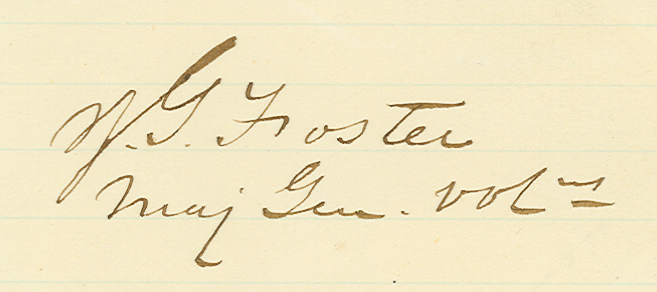 J. G. Foster
Maj Gen. Vols